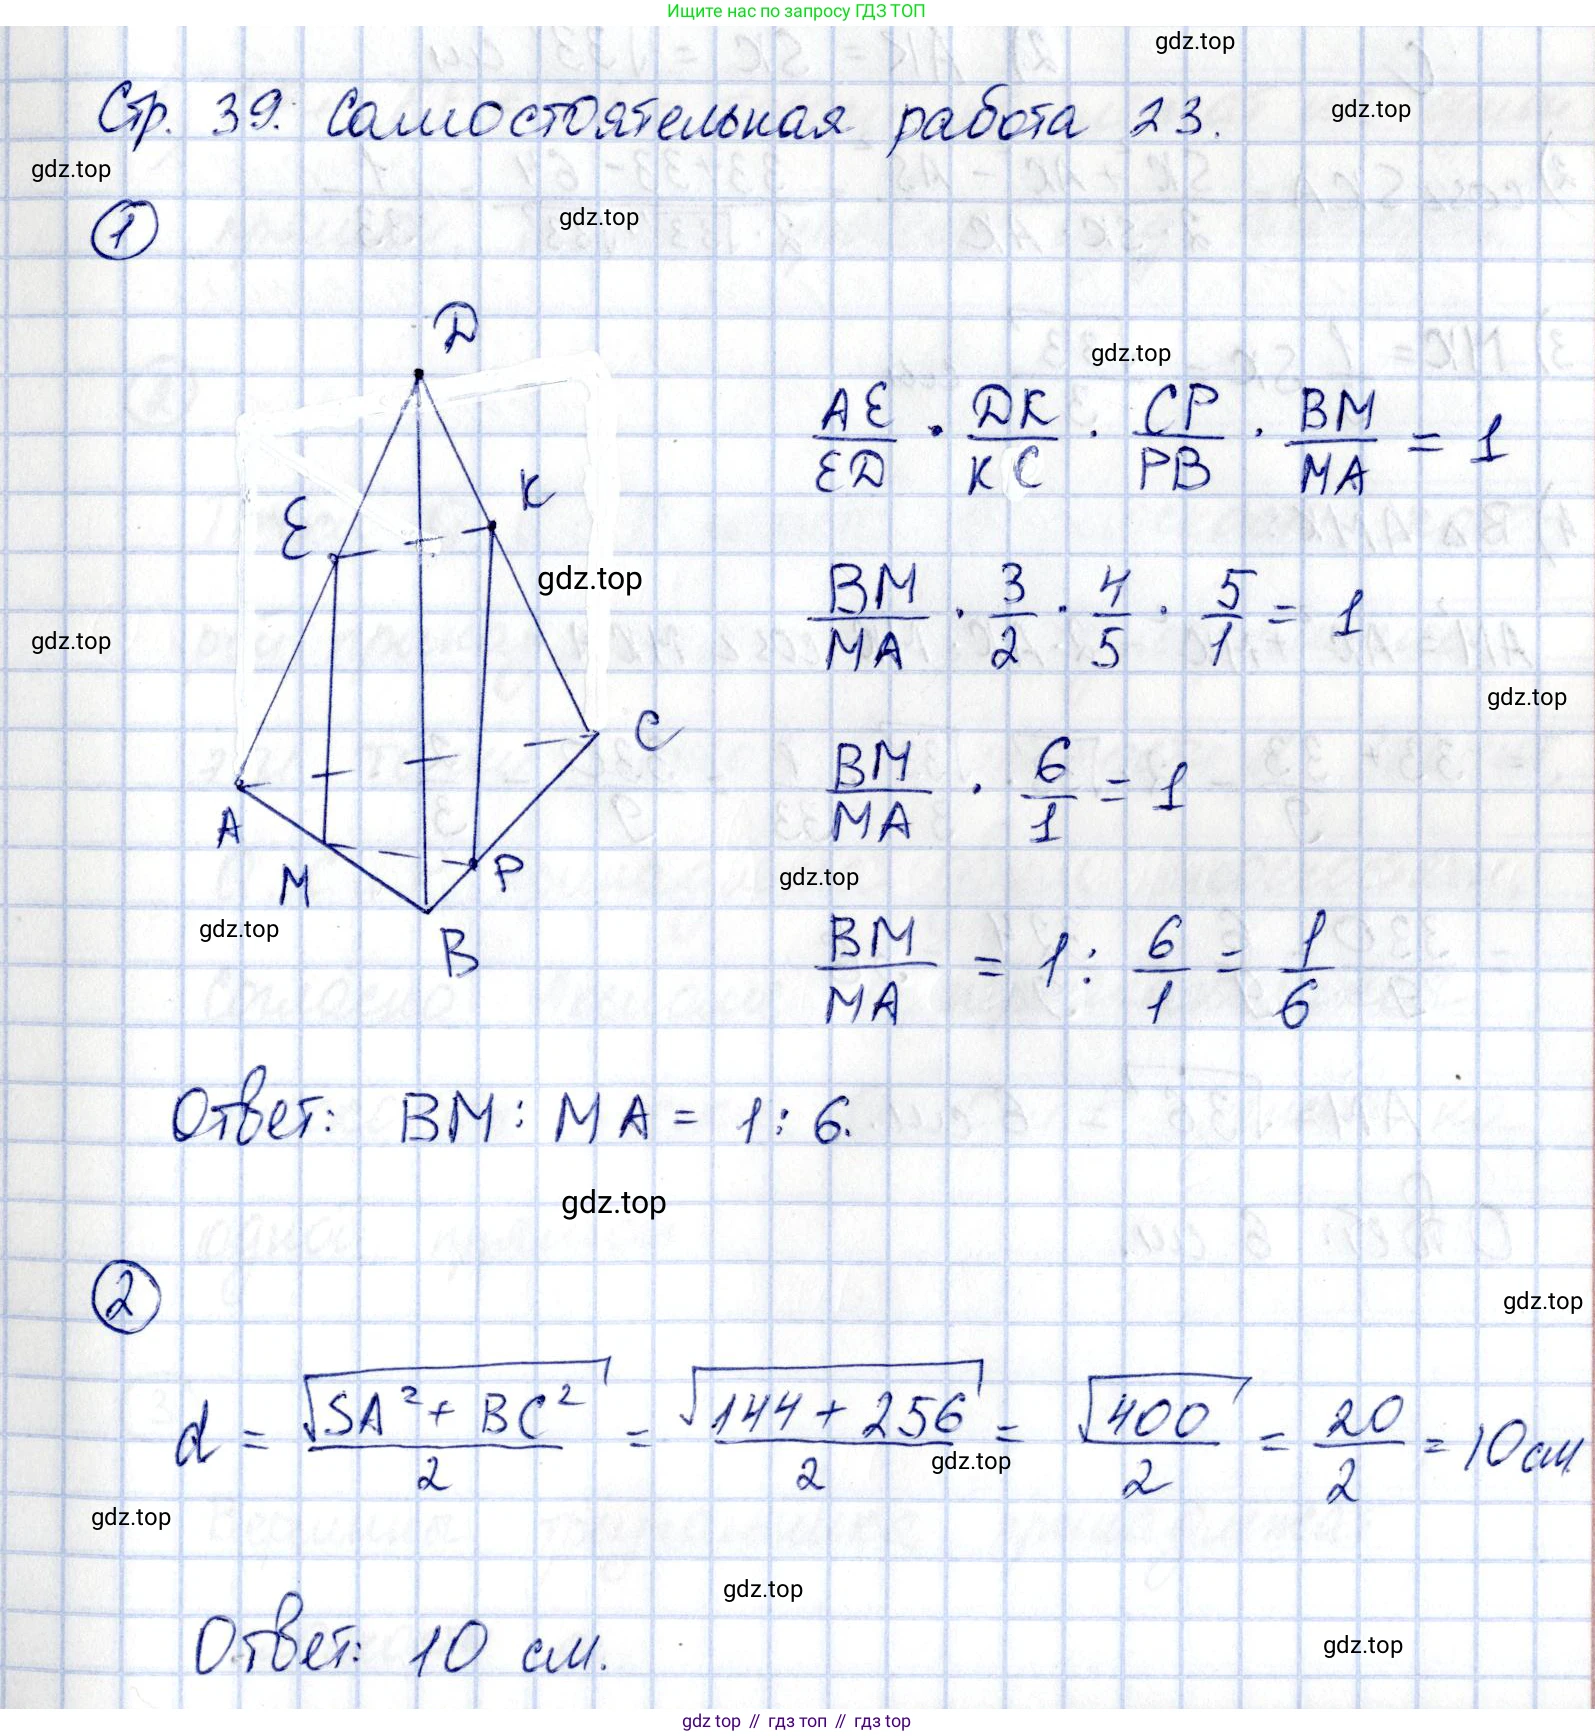 Ищите нас по запросу ГДЗ ТОП
gdz.top
Стр. 39. Самостоятельная работа 23.
gdz.top
gdz.top
1
gdz.top
D
gdz.top
AE/ED · DK/KC · CP/PB · BM/MA = 1
E
K
gdz.top
BM/MA · 3/2 · 4/5 · 5/1 = 1
gdz.top
gdz.top
C
BM/MA · 6/1 = 1
A
M
P
gdz.top
gdz.top
B
BM/MA = 1 : 6/1 = 1/6
Ответ: BM : MA = 1 : 6.
gdz.top
2
gdz.top
d = √SA² + BC²/2 = √144 + 256/2 = √400/2 = 20/2 = 10 см
gdz.top
gdz.top
gdz.top
Ответ: 10 см.
gdz.top
gdz.top // гдз топ // гдз.top